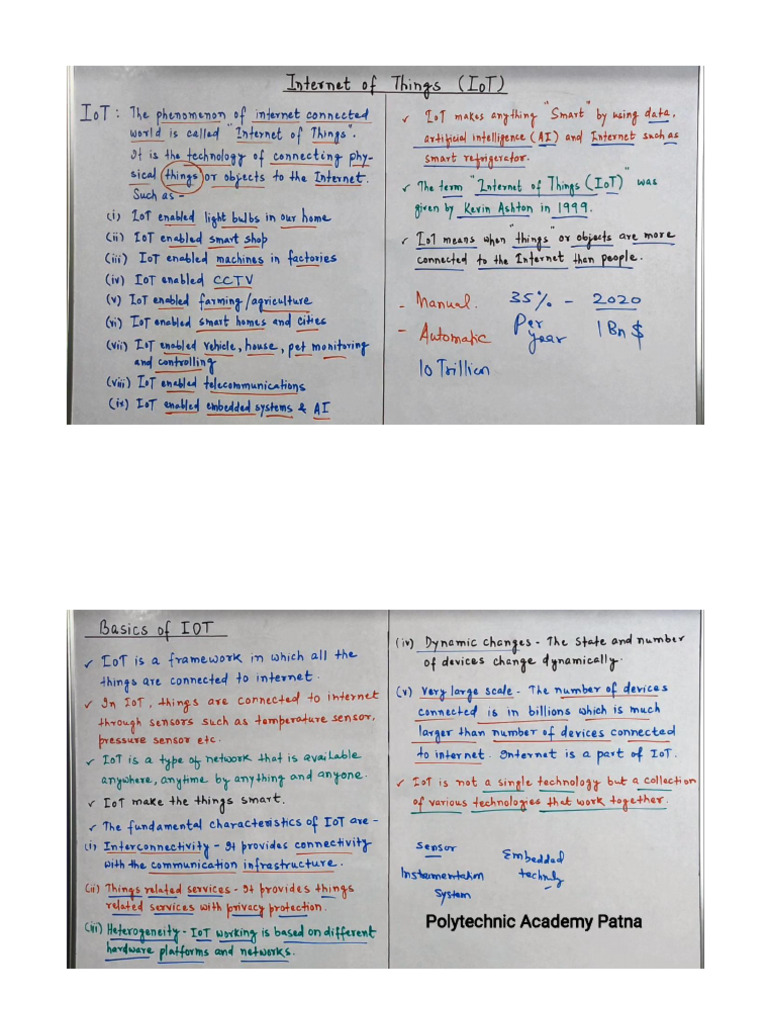 Internet of Things (IoT)
IoT : The phenomenon of internet connected
world is called "Internet of Things".
It is the technology of connecting phy-
sical things or objects to the Internet.
Such as -
(i) IoT enabled light bulbs in our home
(ii) IoT enabled smart shop
(iii) IoT enabled machines in factories
(iv) IoT enabled CCTV
(v) IoT enabled farming/agriculture
(vi) IoT enabled smart homes and cities
(vii) IoT enabled vehicle, house, pet monitoring
and controlling
(viii) IoT enabled telecommunications
(ix) IoT enabled embedded systems & AI
✓ IoT makes anything "Smart" by using data,
artificial intelligence (AI) and Internet such as
smart refrigerator.
✓ The term "Internet of Things (IoT)" was
given by Kevin Ashton in 1999.
✓ IoT means when "things" or objects are more
connected to the Internet than people.
- Manual. 35% - 2020
- Automatic Per year 1 Bn $
10 Trillion
Basics of IOT
✓ IoT is a framework in which all the
things are connected to internet.
✓ In IoT, things are connected to internet
through sensors such as temperature sensor,
pressure sensor etc.
✓ IoT is a type of network that is available
anywhere, anytime by anything and anyone.
✓ IoT make the things smart.
✓ The fundamental characteristics of IoT are -
(i) Interconnectivity - It provides connectivity
with the communication infrastructure.
(ii) Things related services - It provides things
related services with privacy protection.
(iii) Heterogeneity - IoT working is based on different
hardware platforms and networks.
(iv) Dynamic changes - The state and number
of devices change dynamically.
(v) Very large scale - The number of devices
connected is in billions which is much
larger than number of devices connected
to internet. Internet is a part of IoT.
✓ IoT is not a single technology but a collection
of various technologies that work together.
Sensor
Instrumentation
System
Embedded
Polytechnic Academy Patna